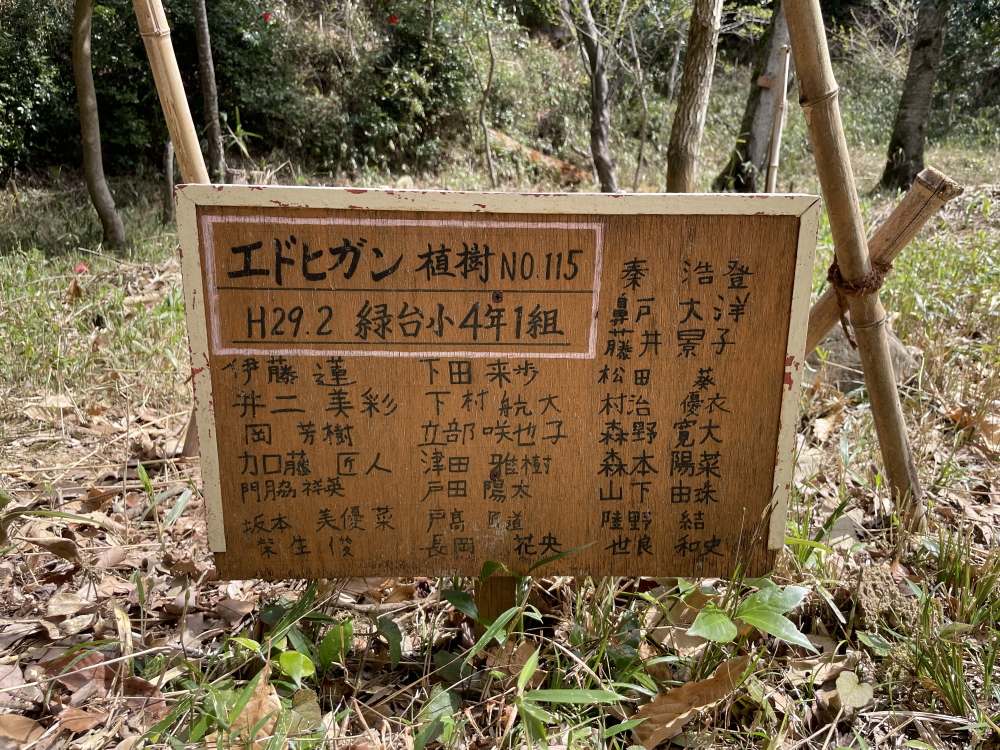 エドヒガン 植樹 NO.115
H29.2 緑台小4年1組
伊藤 蓮
井二 美彩
岡 芳樹
加藤 匠人
門脇 祥英
坂本 美優菜
柴生 俊
下田 来歩
下村 航大
立部 咲也子
津田 雅樹
戸田 陽太
戸高 道
長岡 花央
秦 浩登
鼻戸 大洋
藤井 景子
松田 葵
村治 優衣
森野 寛大
森本 陽菜
山下 由珠
陸野 結
世良 和史